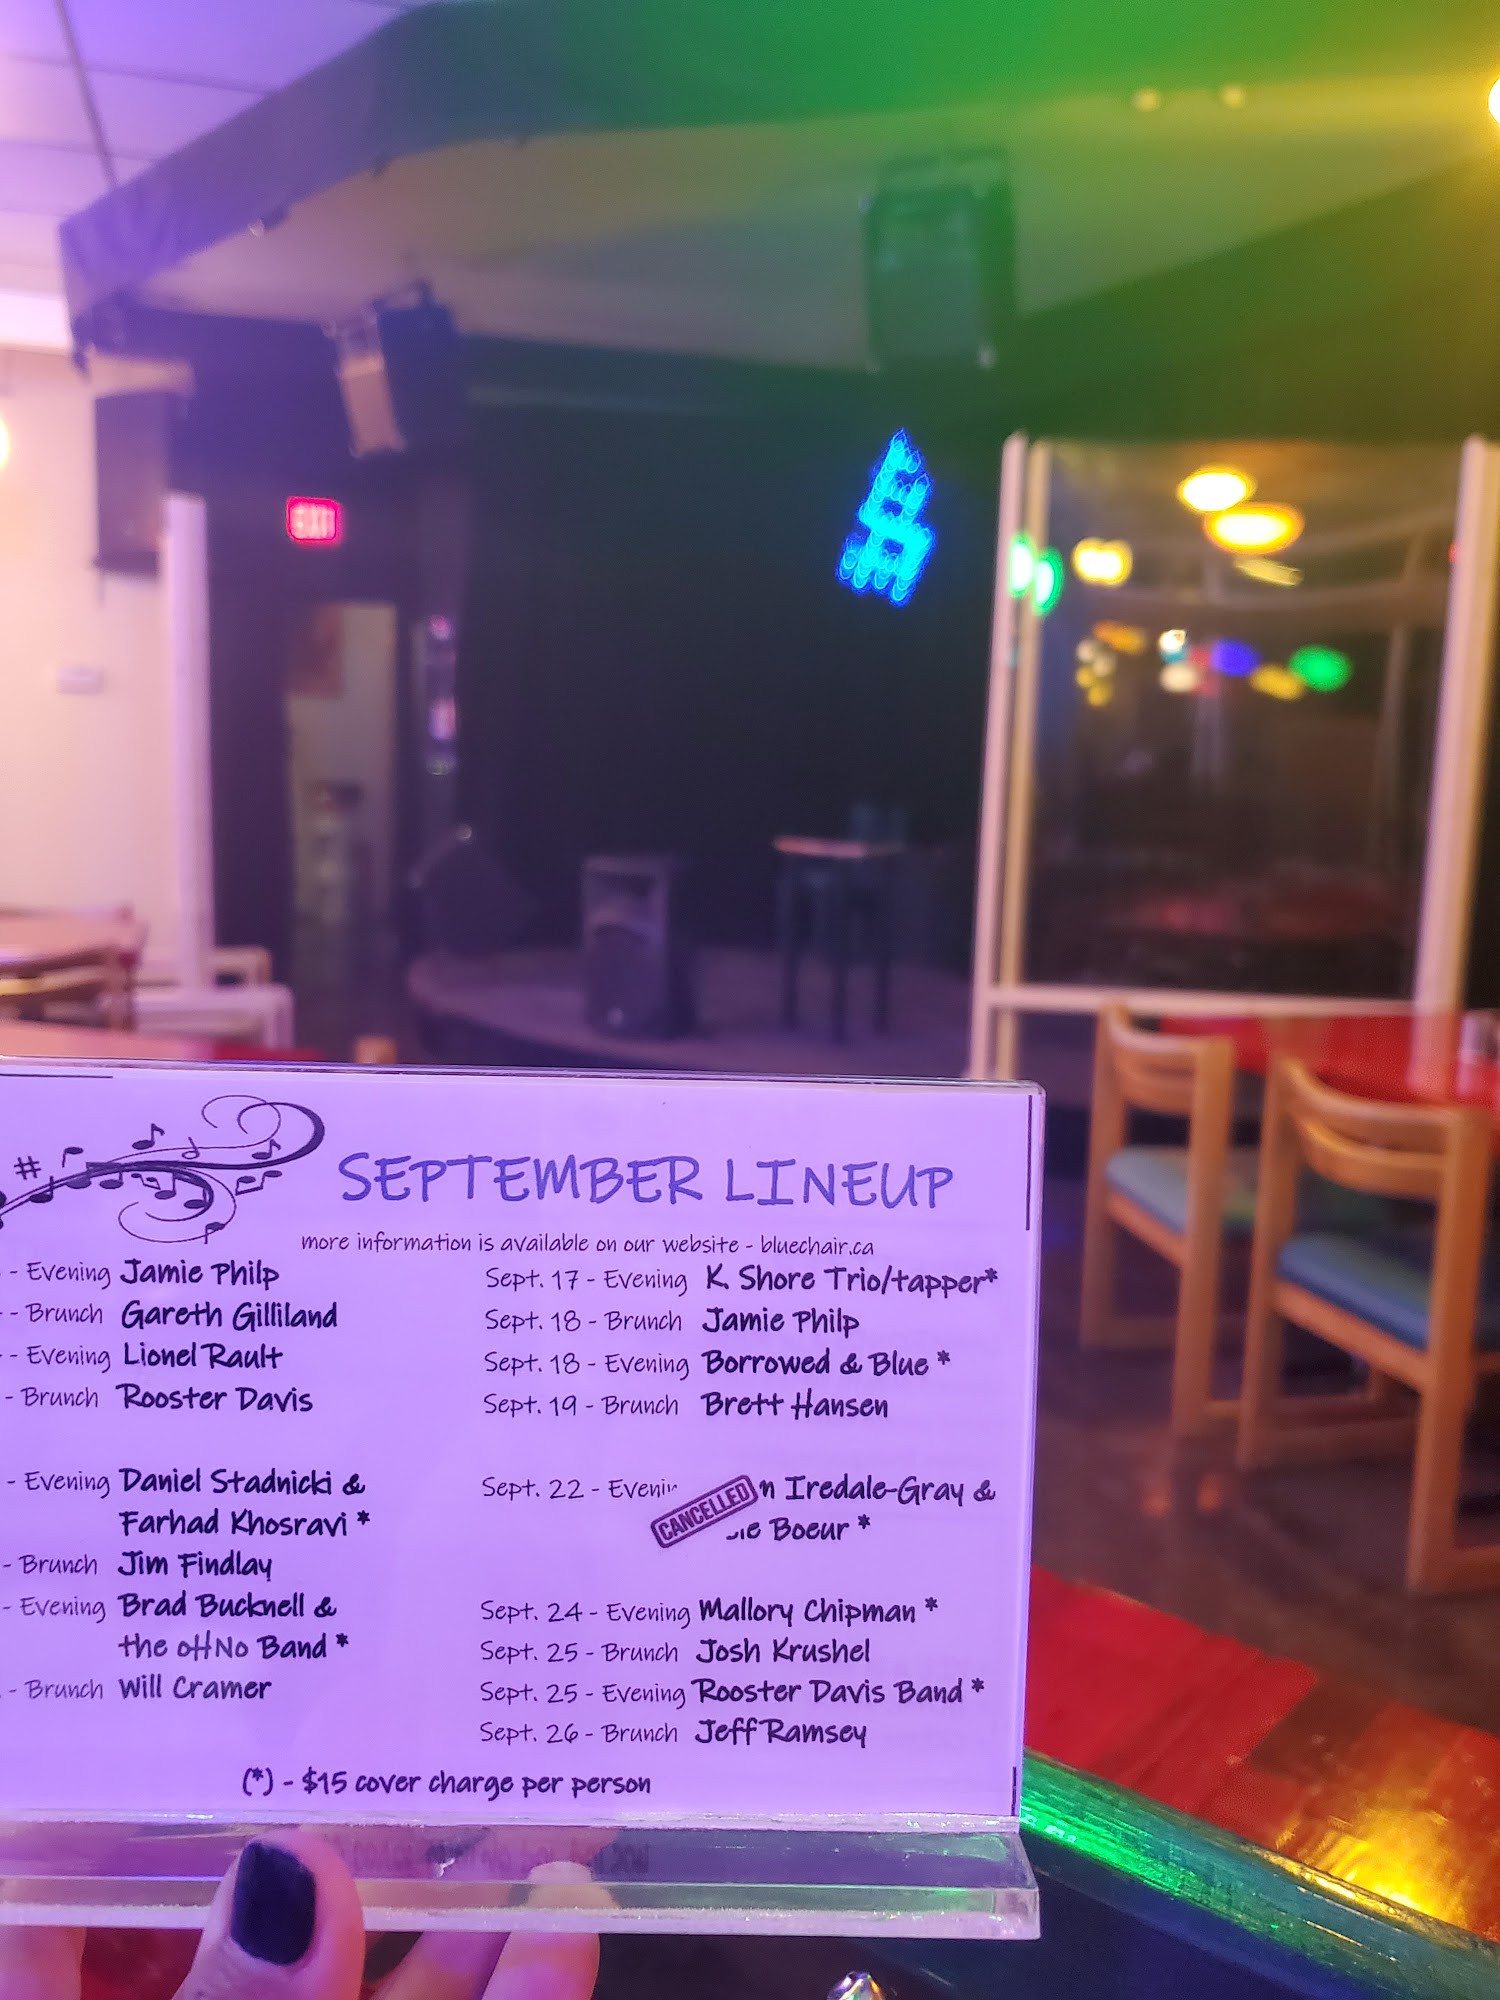 EXIT
SEPTEMBER LINEUP
more information is available on our website - bluechair.ca
- Evening Jamie Philp
- Brunch Gareth Gilliland
- Evening Lionel Rault
- Brunch Rooster Davis
- Evening Daniel Stadnicki &
Farhad Khosravi *
- Brunch Jim Findlay
- Evening Brad Bucknell &
the oHNo Band *
- Brunch Will Cramer
Sept. 17 - Evening K. Shore Trio/tapper*
Sept. 18 - Brunch Jamie Philp
Sept. 18 - Evening Borrowed & Blue *
Sept. 19 - Brunch Brett Hansen
Sept. 22 - Evenin Iredale-Gray &
CANCELLED
Boeur *
Sept. 24 - Evening Mallory Chipman *
Sept. 25 - Brunch Josh Krushel
Sept. 25 - Evening Rooster Davis Band *
Sept. 26 - Brunch Jeff Ramsey
(*) - $15 cover charge per person